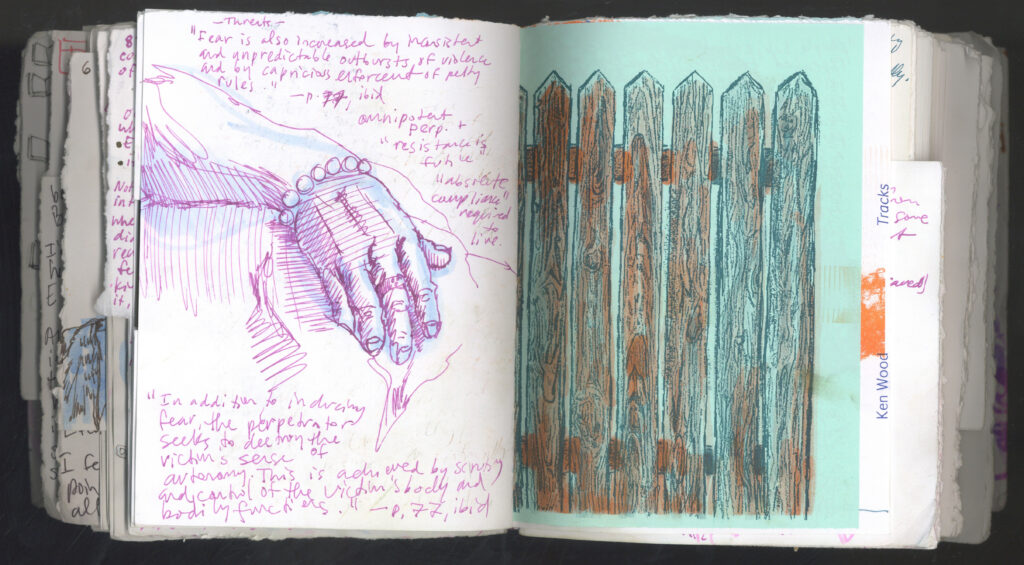 -Threats-
"Fear is also increased by inconsistent
and unpredictable outbursts of violence
and by capricious enforcent of petty
rules."
-p. 77, ibid
omnipotent
perp. +
"resistance is
futile"
"absolute
compliance"
required
to
live.
"In addition to inducing
fear, the perpetrator
seeks to destroy the
victim's sense of
autonomy. This is achieved by scrutiny
and control of the victim's body and
bodily functions." -p. 77, ibid
8
6
Not
in
whe
di
re
fe
it,
H fe
poin
all
Tracks
Ken Wood
some